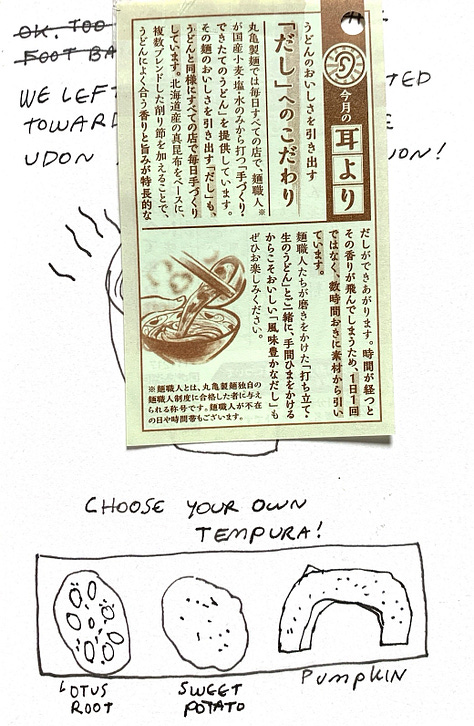 OK. TOO
FOOT BA
WE LEF TED
TOWARD E
UDON ION!
今月の 耳より
うどんのおいしさを引き出す
「だし」へのこだわり
丸亀製麺では毎日すべての店で、麺職人※
が国産小麦・塩・水のみから打つ「手づくり・
できたてのうどん」を提供しています。
その麺のおいしさを引き出す「だし」も、
うどんと同様にすべての店で毎日手づくり
しています。北海道産の真昆布をベースに、
複数ブレンドした削り節を加えることで、
うどんによく合う香りと旨みが特長的な
だしができあがります。時間が経つと
その香りが飛んでしまうため、1日1回
ではなく、数時間おきに素材から引い
ています。
麺職人たちが磨きをかけた「打ち立て・
生のうどん」とご一緒に、手間ひまをかける
からこそおいしい「風味豊かなだし」も
ぜひお楽しみください。
※麺職人とは、丸亀製麺独自の
麺職人制度に合格した者に与え
られる称号です。麺職人が不在
の日や時間帯もございます。
CHOOSE YOUR OWN
TEMPURA!
LOTUS
ROOT
SWEET
POTATO
PUMPKIN